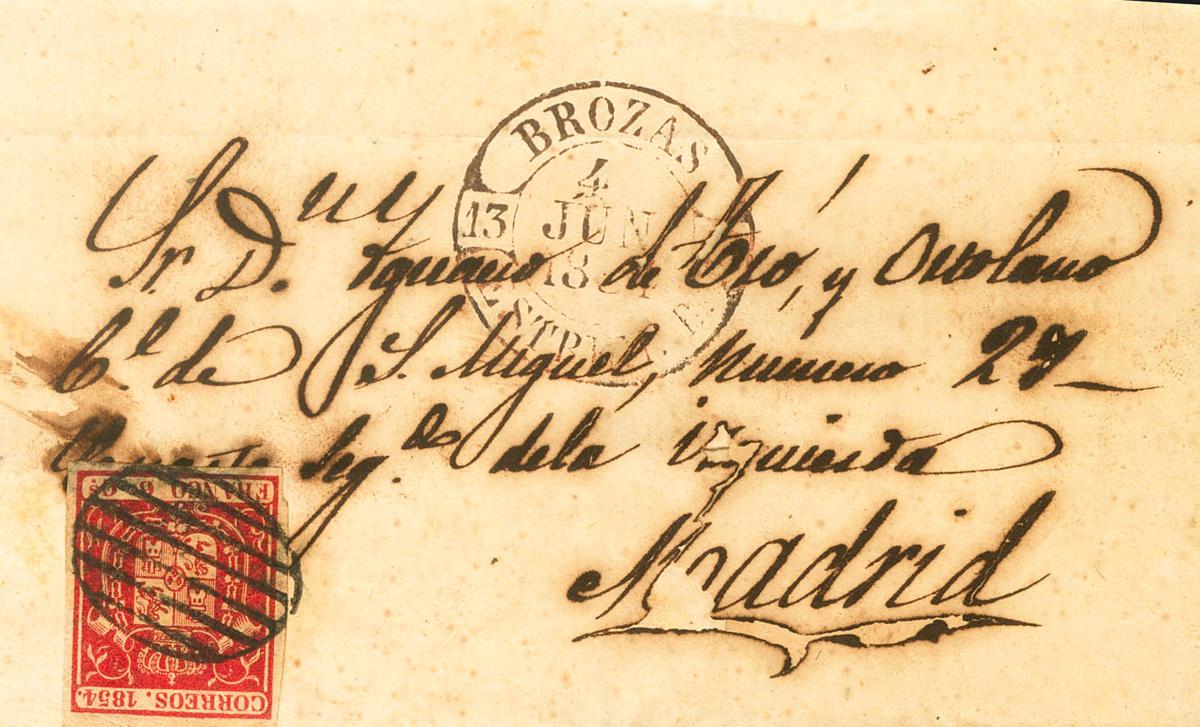 BROZAS
4
JUN
13
Sr. D.n Ignacio de Tró, y Ortolano
C.l de S. Miguel, Número 27
Cuarto Seg.do de la izquierda
Madrid
FRANCO 6 Cs
CORREOS. 1854.